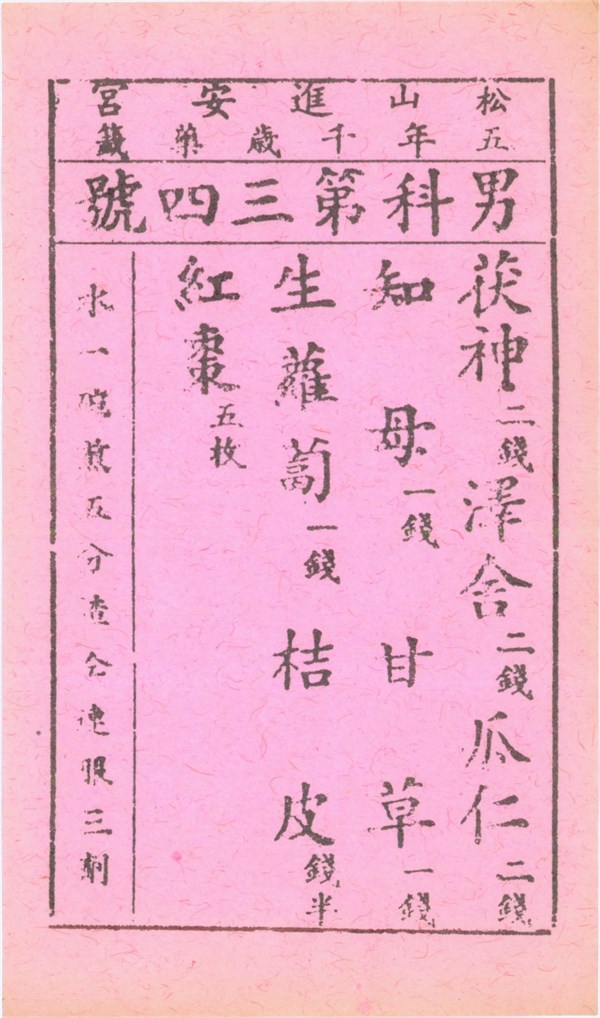 松山進安宮
五年千歲藥籤
男科第三四號
茯神二錢 澤舍二錢 瓜仁二錢
知母一錢 甘草一錢
生蘿蔔一錢 桔皮錢半
紅棗五枚
水一碗煎五分渣仝連服三劑